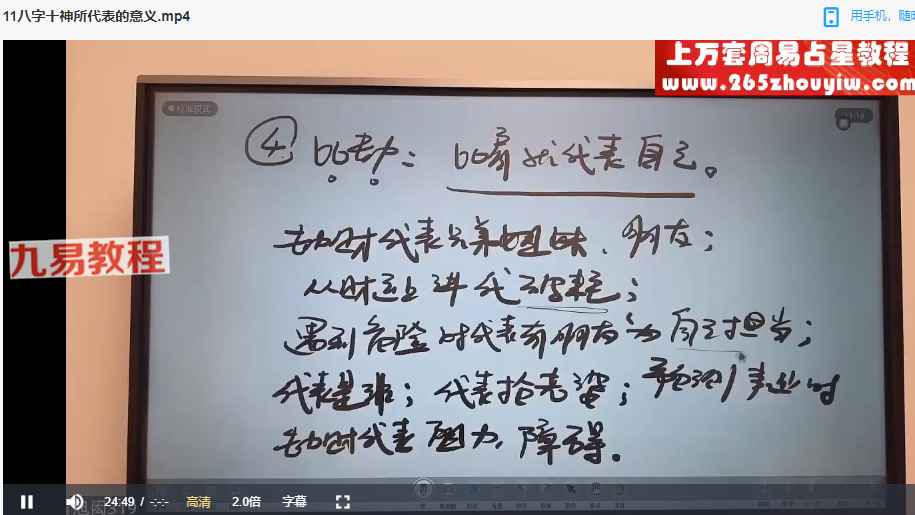 11八字十神所代表的意义.mp4
用手机，随时
上万套周易占星教程
www.265zhouyiw.com
标准模式
九易教程
④ 比劫：比肩代表自己。
劫财代表兄弟姐妹、朋友；
从财运上讲代表破耗；
遇到危险时代表有朋友为自己担当；
代表是非；代表抢老婆；预测事业时
劫财代表阻力，障碍。
24:49 / -:-
高清
2.0倍
字幕